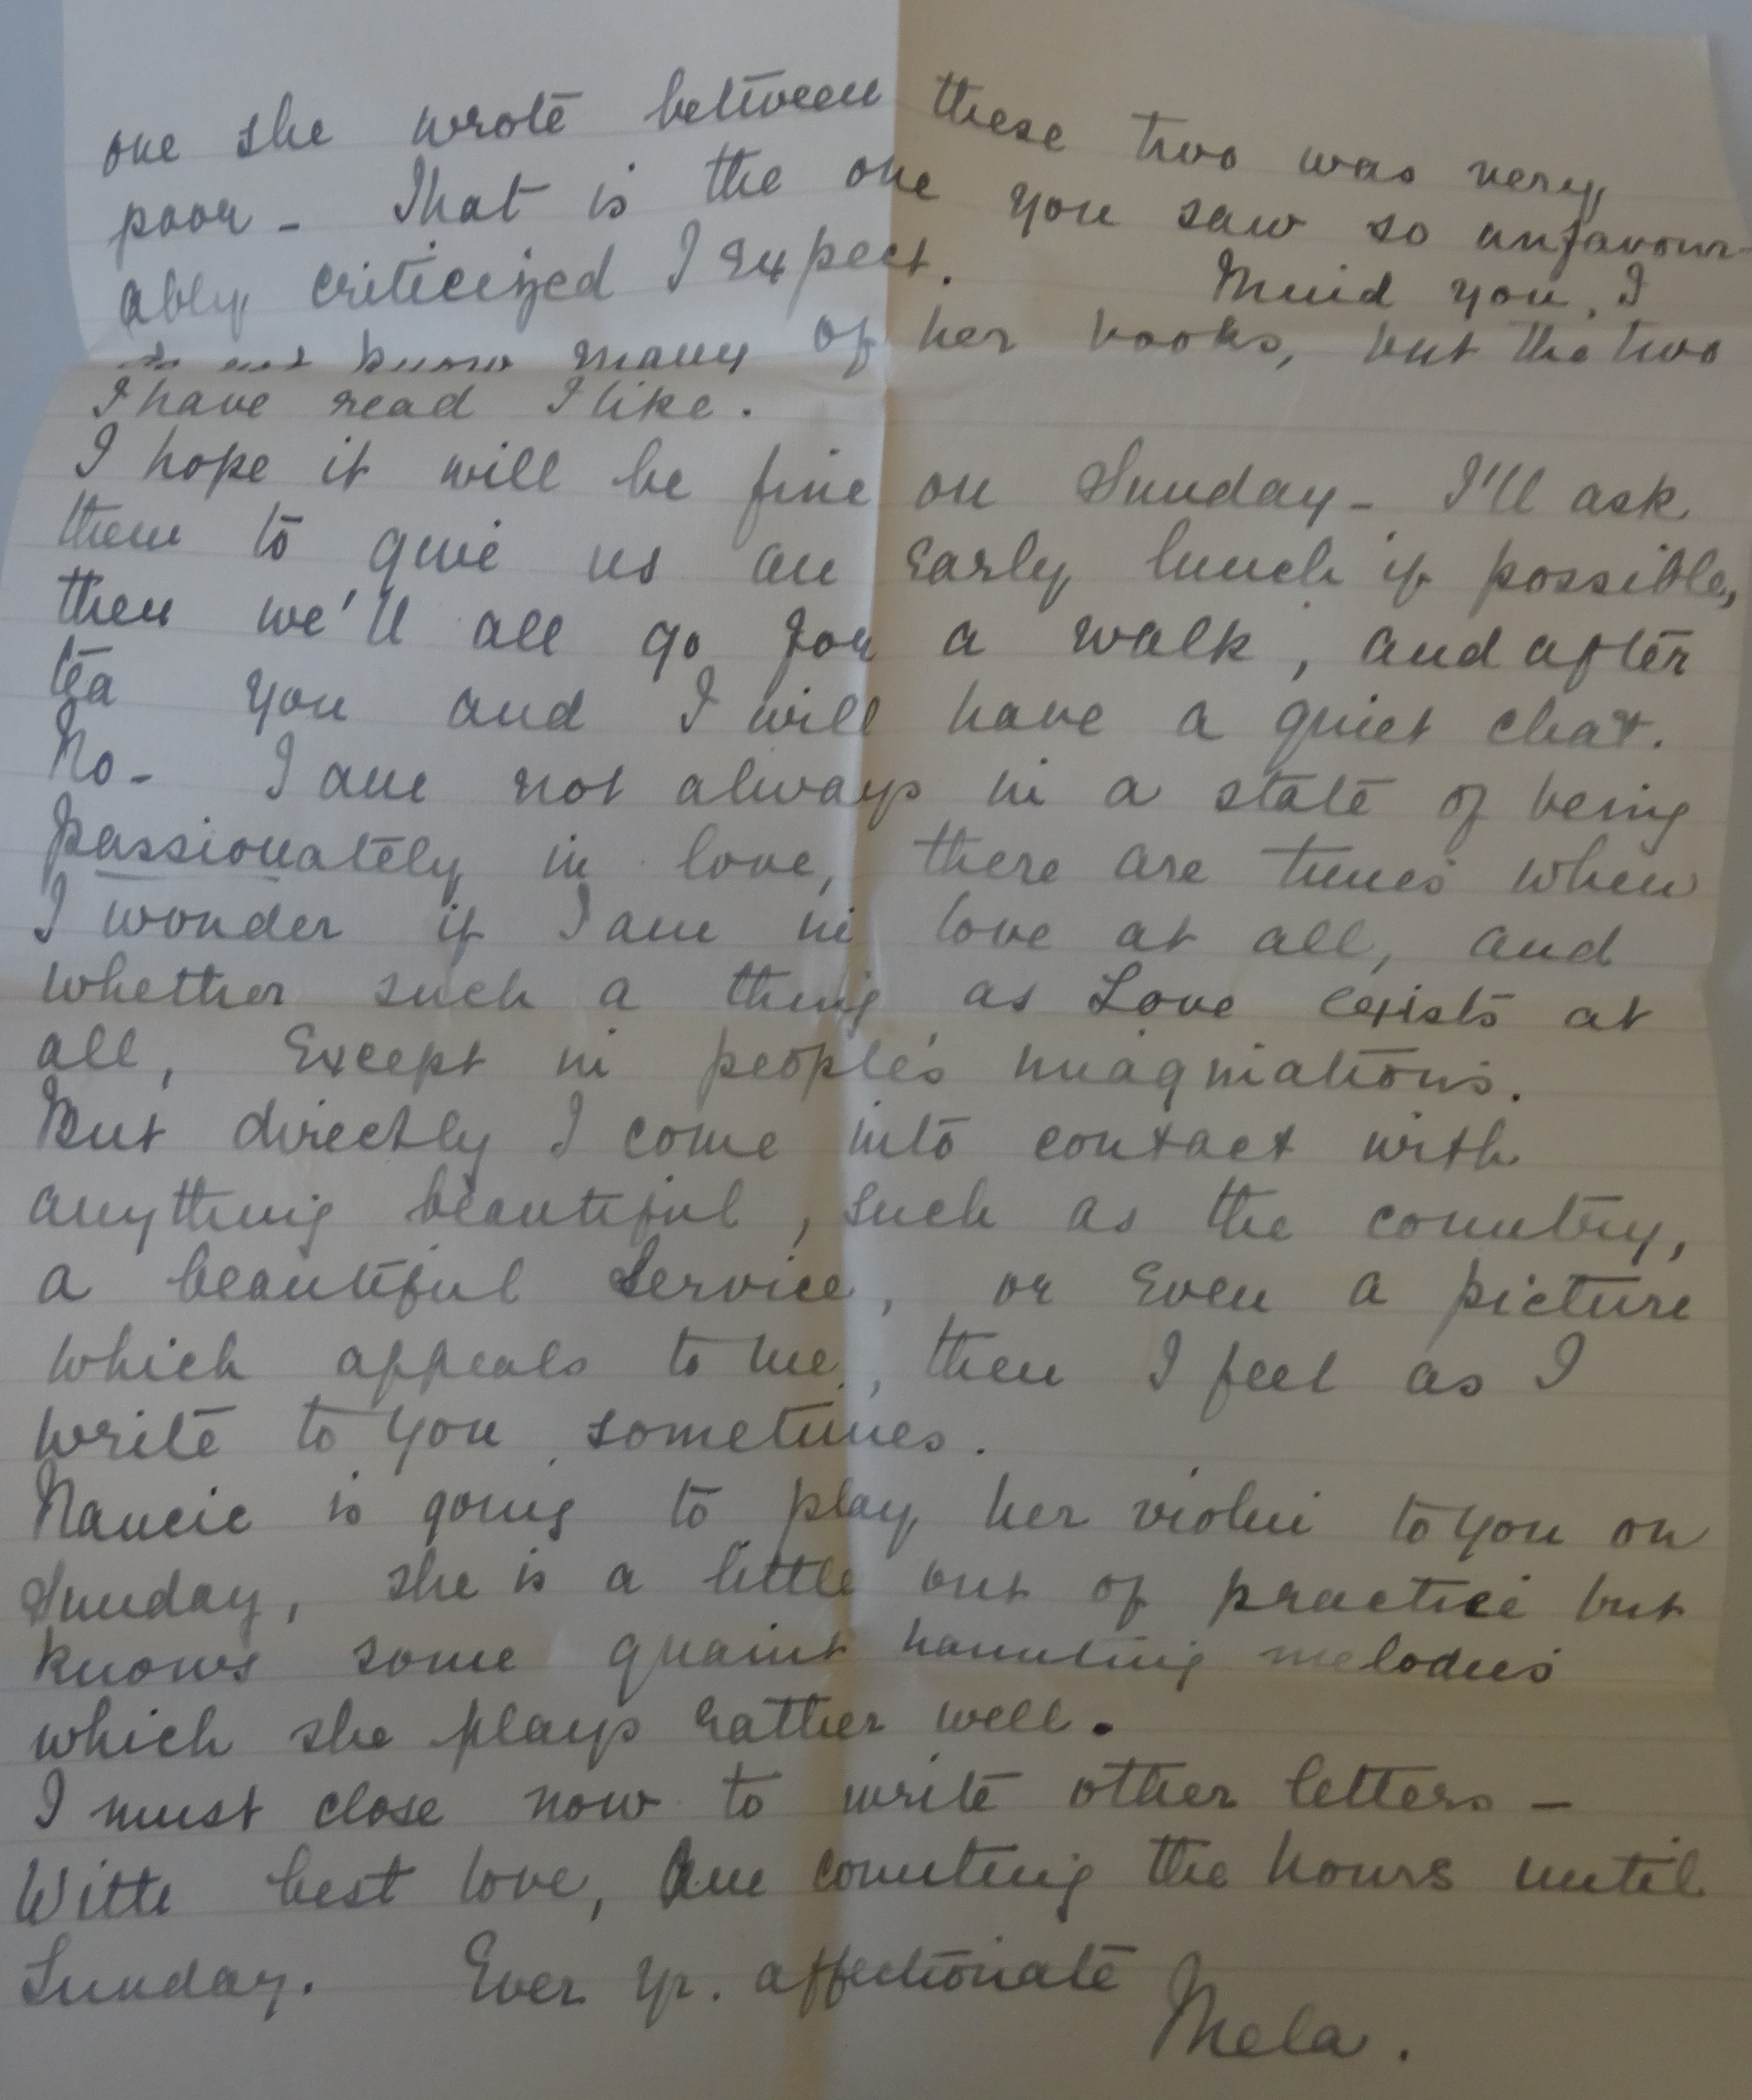 one she wrote between these two was very
poor - That is the one you saw so unfavour-
ably criticized I expect. Mind you, I
do not know many of her books, but the two
I have read I like.
I hope it will be fine on Sunday - I'll ask
them to give us an early lunch if possible,
then we'll all go for a walk, and after
tea you and I will have a quiet chat.
No - I am not always in a state of being
passionately in love, there are times when
I wonder if I am in love at all, and
whether such a thing as Love exists at
all, Except in people's imaginations.
But directly I come into contact with
anything beautiful, such as the country,
a beautiful Service, or Even a picture
which appeals to me, then I feel as I
write to you sometimes.
Nancie is going to play her violin to you on
Sunday, she is a little out of practice but
knows some quaint haunting melodies
which she plays rather well.
I must close now to write other letters -
With best love, Am counting the hours until
Sunday. Ever yr. affectionate
Mela.